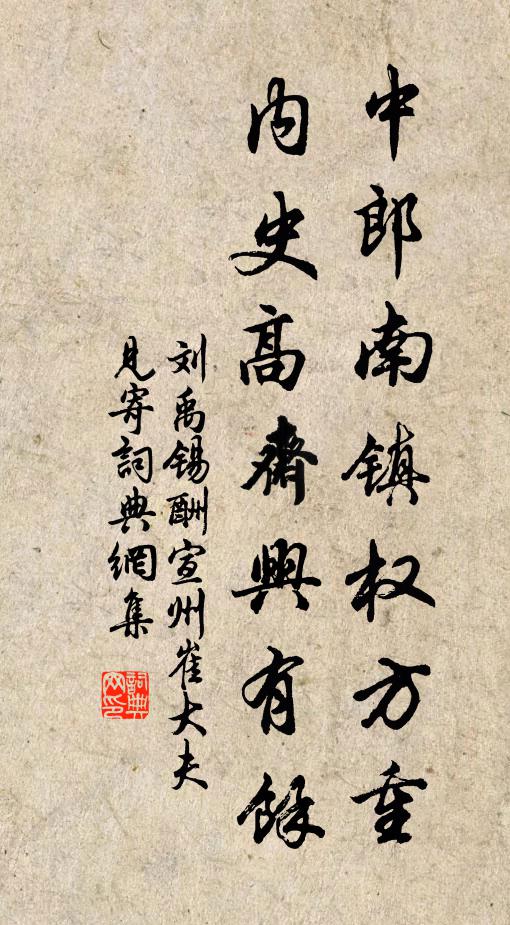 中郎南镇权方重
内史高齋興有餘
刘禹锡酬宣州崔大夫
見寄詞典網集
詞典网印